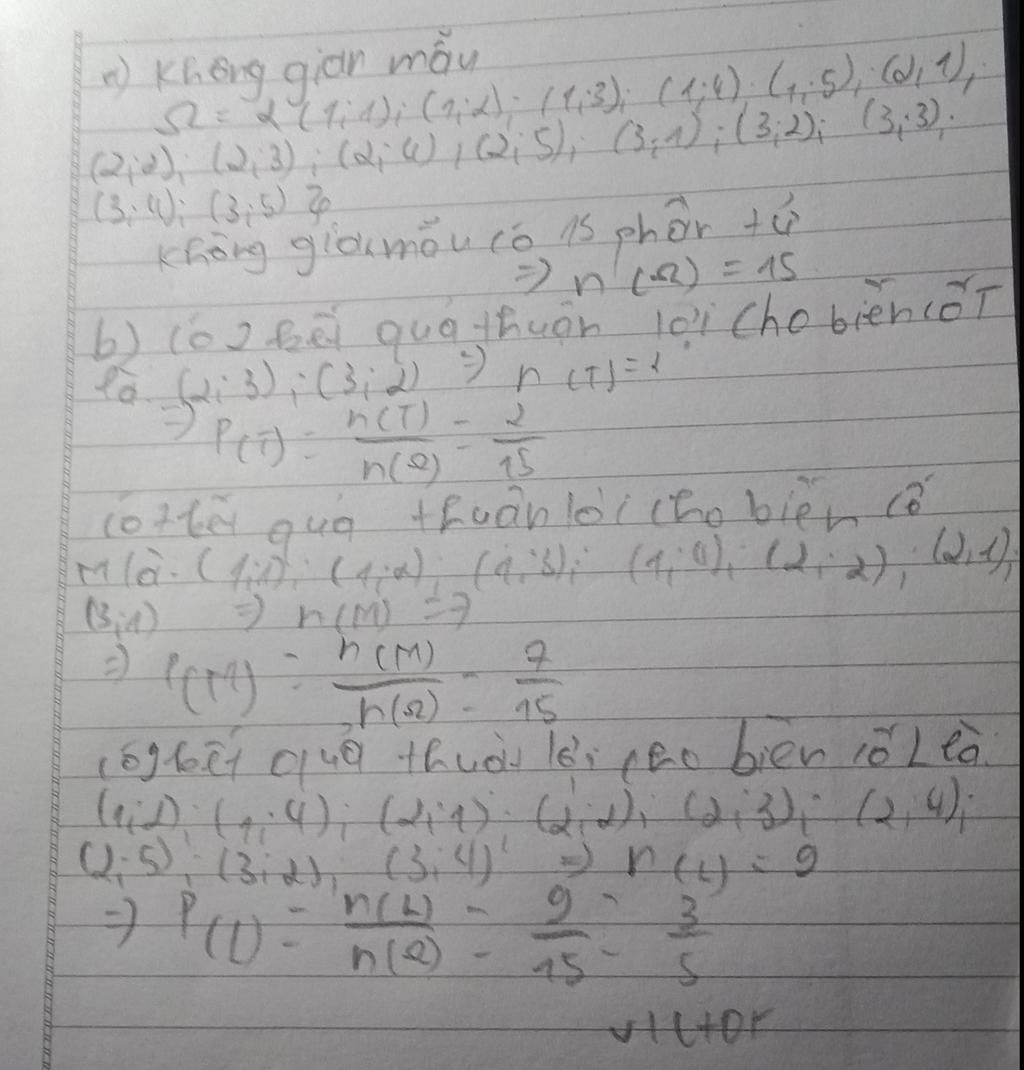 a) Không gian mẫu
Ω = { (1;1); (1;2); (1;3); (1;4); (1;5); (2;1);
(2;2); (2;3); (2;4); (2;5); (3;1); (3;2); (3;3);
(3;4); (3;5) }
Không gian mẫu có 15 phần tử
=> n(Ω) = 15
b) Có 2 kết quả thuận lợi cho biến cố T
là (2;3); (3;2) => n(T) = 2
=> P(T) = n(T)/n(Ω) = 2/15
Có 7 kết quả thuận lợi cho biến cố
M là. (1;1); (1;2); (1;3); (1;4); (2;2); (2;1);
(3;1) => n(M) = 7
=> P(M) = n(M)/n(Ω) = 7/15
Có 9 kết quả thuận lợi cho biến cố L là.
(1;2); (1;4); (2;1); (2;2); (2;3); (2;4);
(2;5); (3;2); (3;4) => n(L) = 9
=> P(L) = n(L)/n(Ω) = 9/15 = 3/5
victor